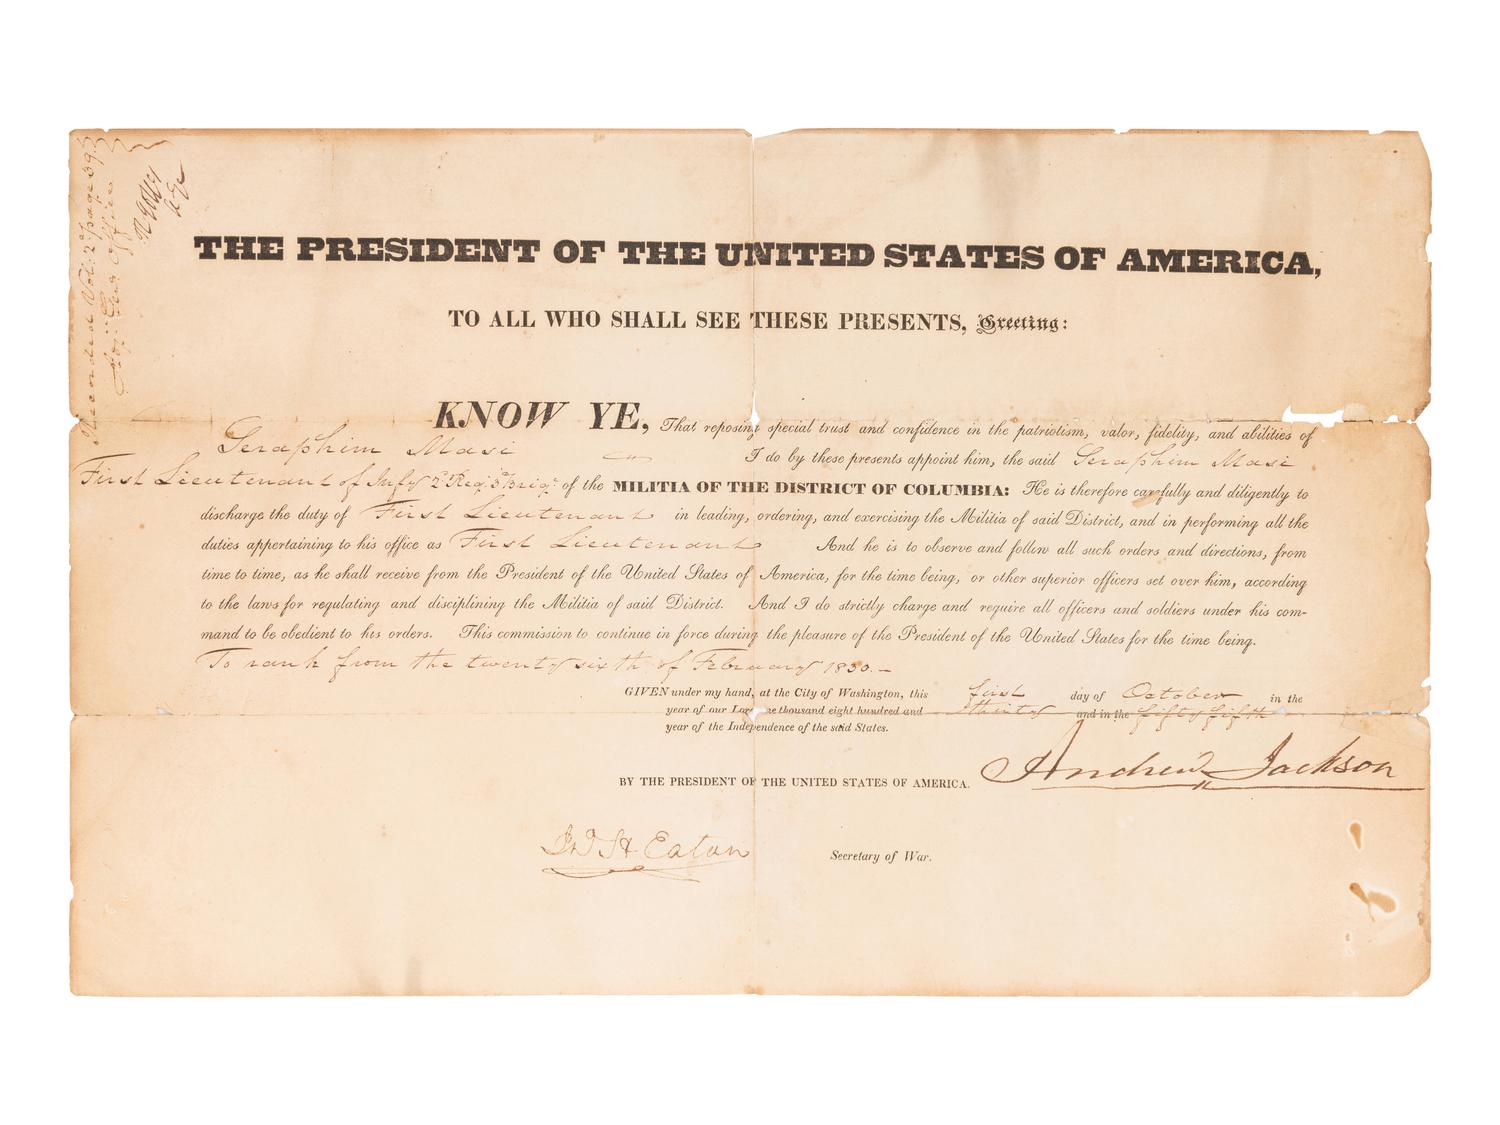 Recorded Vol: 2 page 393
Adj: Genl Office
THE PRESIDENT OF THE UNITED STATES OF AMERICA,
TO ALL WHO SHALL SEE THESE PRESENTS, Greeting:
KNOW YE, That reposing special trust and confidence in the patriotism, valor, fidelity, and abilities of
Seraphim Masi I do by these presents appoint him, the said Seraphim Masi
First Lieutenant of Infy 2d Reg: 3d Brig: of the MILITIA OF THE DISTRICT OF COLUMBIA: He is therefore carefully and diligently to
discharge the duty of First Lieutenant in leading, ordering, and exercising the Militia of said District, and in performing all the
duties appertaining to his office as First Lieutenant And he is to observe and follow all such orders and directions, from
time to time, as he shall receive from the President of the United States of America, for the time being, or other superior officers set over him, according
to the laws for regulating and disciplining the Militia of said District. And I do strictly charge and require all officers and soldiers under his com-
mand to be obedient to his orders. This commission to continue in force during the pleasure of the President of the United States for the time being.
To rank from the twenty sixth of February 1830.—
GIVEN under my hand, at the City of Washington, this first day of October in the
year of our Lord one thousand eight hundred and thirty and in the fifty fifth
year of the Independence of the said States.
Andrew Jackson
BY THE PRESIDENT OF THE UNITED STATES OF AMERICA.
Jno H Eaton Secretary of War.